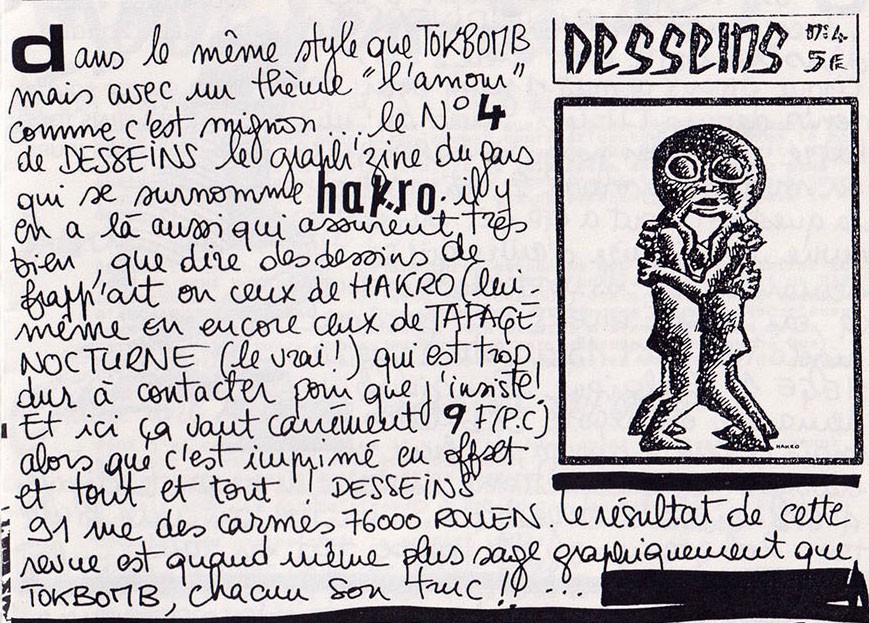 dans le même style que TOKBOMB
mais avec un thème "l'amour"
comme c'est mignon... le N° 4
de DESSEINS le graph'zine du gars
qui se surnomme hakro. il y
en a là aussi qui assurent très
bien, que dire des dessins de
frapp'art ou ceux de HAKRO (lui-
même ou encore ceux de TAPAGE
NOCTURNE (le vrai!) qui est trop
dur à contacter pour que j'insiste!
Et ici ça vaut carrément 9 F(P.C)
alors que c'est imprimé en offset
et tout et tout! DESSEINS
91 rue des carmes 76000 ROUEN. le résultat de cette
revue est quand même plus sage graphiquement que
TOKBOMB, chacun son truc!! ...
DESSEINS N:4
5F
HAKRO